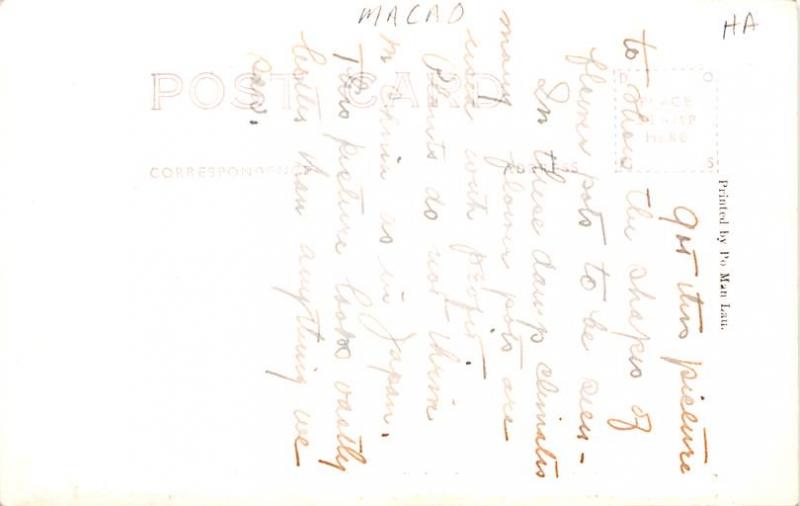 MACAO
HA
POST CARD
CORRESPONDENCE
ADDRESS
PLACE
HERE
Printed by Po Man Lau.
Got this picture
to show the shapes of
flower pots to be seen -
In these damp climates
many flower pots are
used with profit
Plants do not thrive
in china as in Japan.
This picture looks vastly
better than anything we
saw.